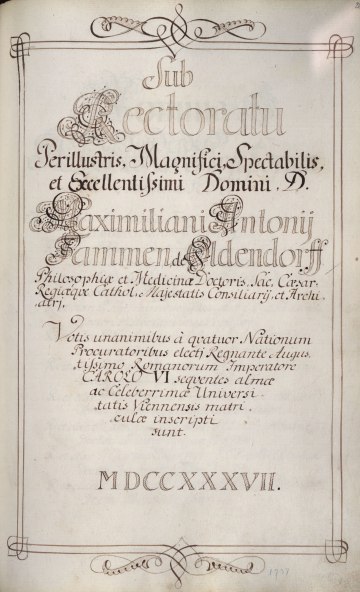 Sub
Rectoratu
Perillustris, Magnifici, Spectabilis,
et Excellentissimi Domini, D.
Maximiliani Antonij
Rammen de Aldendorff
Philosophiæ et Medicinæ Doctoris, Sac. Cæsar.
Regiæqȝ Cathol. Majestatis Consiliarij, et Archi-
atri,
Votis unanimibus à quatuor Nationum
Procuratoribus electi Regnante Augus
tissimo Romanorum Imperatore
CAROLO VI sequentes almæ
ac Celeberrimæ Universi
tatis Viennensis matri,
culæ inscripti
sunt.
MDCCXXXVII.
1737